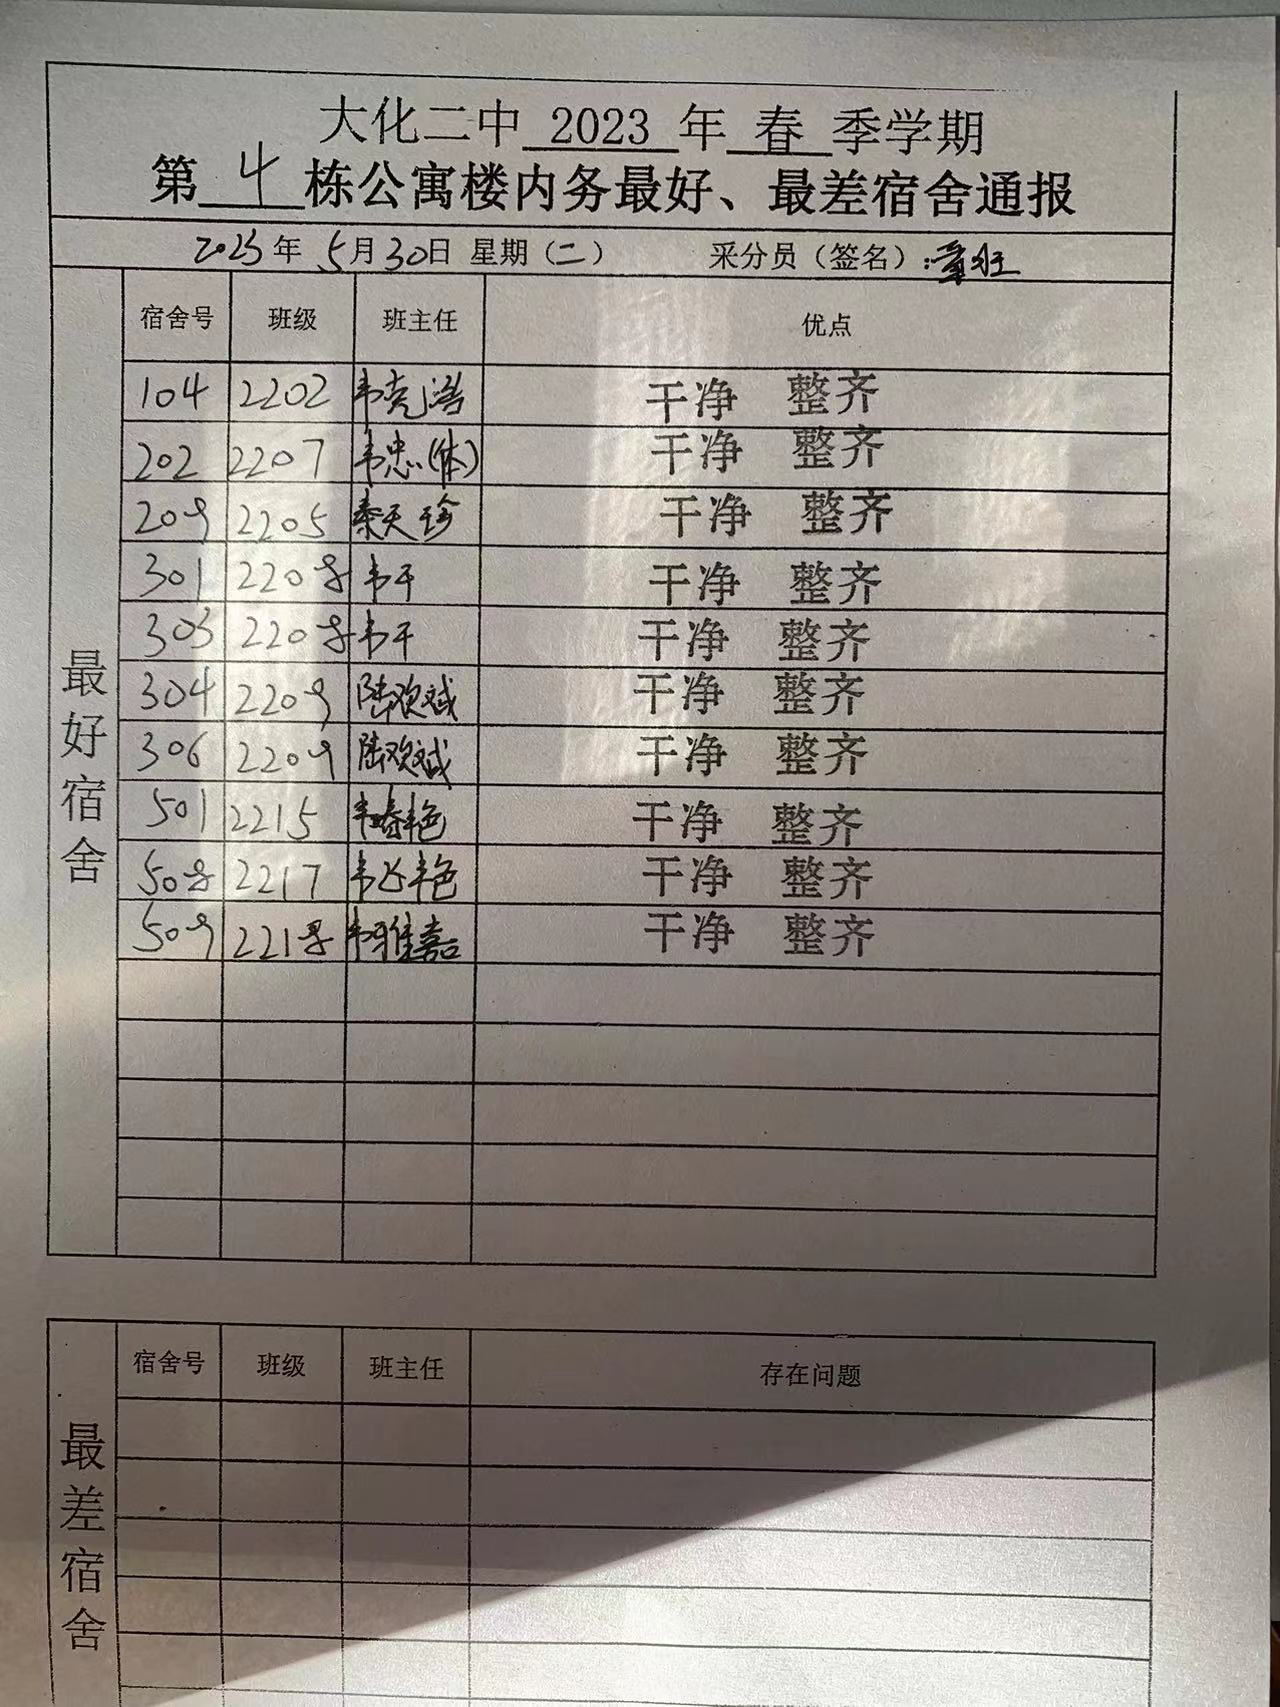 大化二中 2023 年 春 季学期
第 4 栋公寓楼内务最好、最差宿舍通报
2023年 5月30日 星期(二) 采分员(签名):
最好宿舍
宿舍号 班级 班主任 优点
104 2202 韦克浩 干净 整齐
202 2207 韦忠(体) 干净 整齐
209 2205 秦天珍 干净 整齐
301 2208 韦干 干净 整齐
303 2208 韦干 干净 整齐
304 2209 陆欢斌 干净 整齐
306 2209 陆欢斌 干净 整齐
501 2215 韦春艳 干净 整齐
508 2217 韦艳 干净 整齐
509 2218 韦雅嘉 干净 整齐
最差宿舍
宿舍号 班级 班主任 存在问题